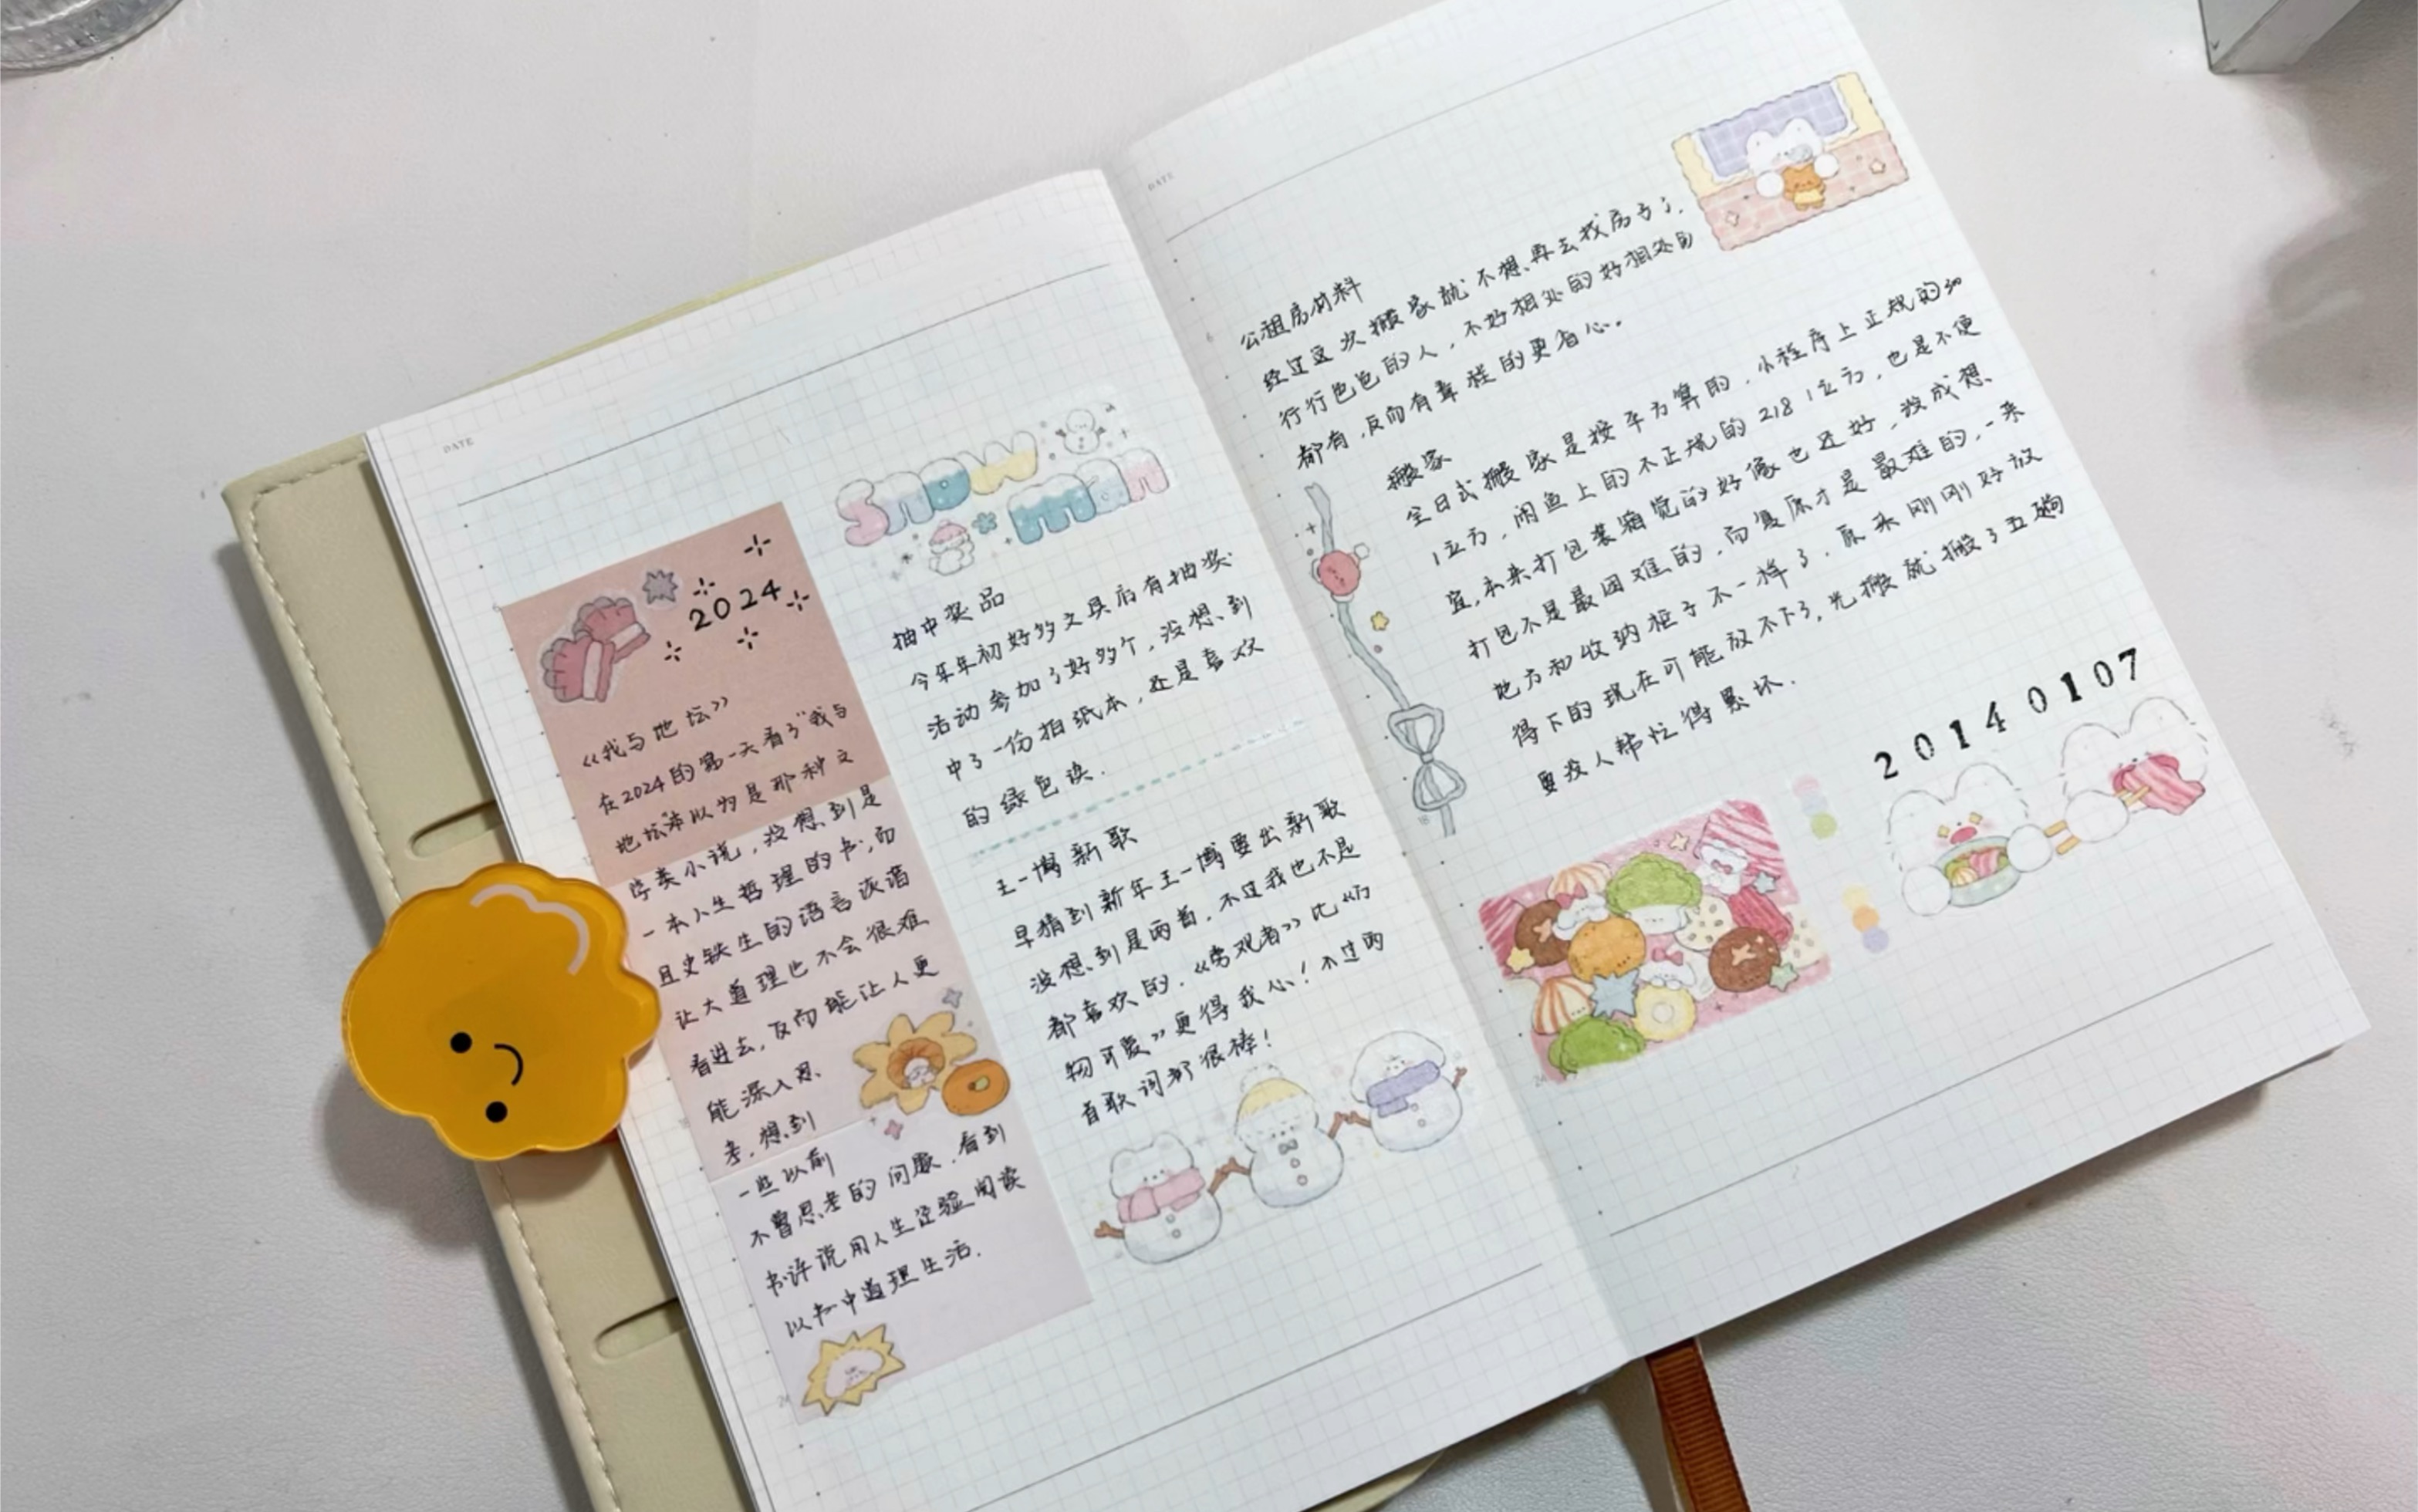 DATE
2024
《我与地坛》
在2024的第一天看了“我与
地坛”本以为是那种文
学类小说，没想到是
一本人生哲理的书，而
且史铁生的语言诙谐
让大道理也不会很难
看进去，反而能让人更
能深入思
考，想到
一些以前
不曾思考的问题，看到
书评说用人生经验阅读
以书中道理生活．
snow
man
抽中奖品
今年年初好多文具店有抽奖
活动参加了好多个，没想到
中了一份拍纸本，还是喜欢
的绿色诶．
王一博新歌
早猜到新年王一博要出新歌
没想到是两首，不过我也不是
都喜欢的．《旁观者》比《万
物可爱》更得我心！不过两
首歌词都很棒！
DATE
公租房材料
经过这次搬家就不想再去找房子了，
行行色色的人，不好相处的好相处的
都有，反而有章程的更省心．
搬家
全日式搬家是按平方算的，小程序上正规的
1立方，闲鱼上的不正规的218 1立方，也是不便
宜，本来打包装箱觉的好像也还好，没成想
打包不是最困难的，而复原才是最难的，一来
地方和收纳柜子不一样了，原来刚刚好放
得下的现在可能放不下了，光搬就搬了五趟
更没人帮忙得累坏．
20140107